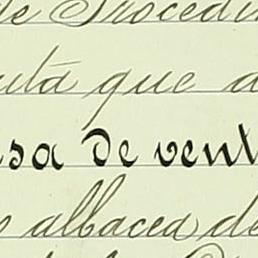 de Procedim
uta que a
sa de vent
albacea de